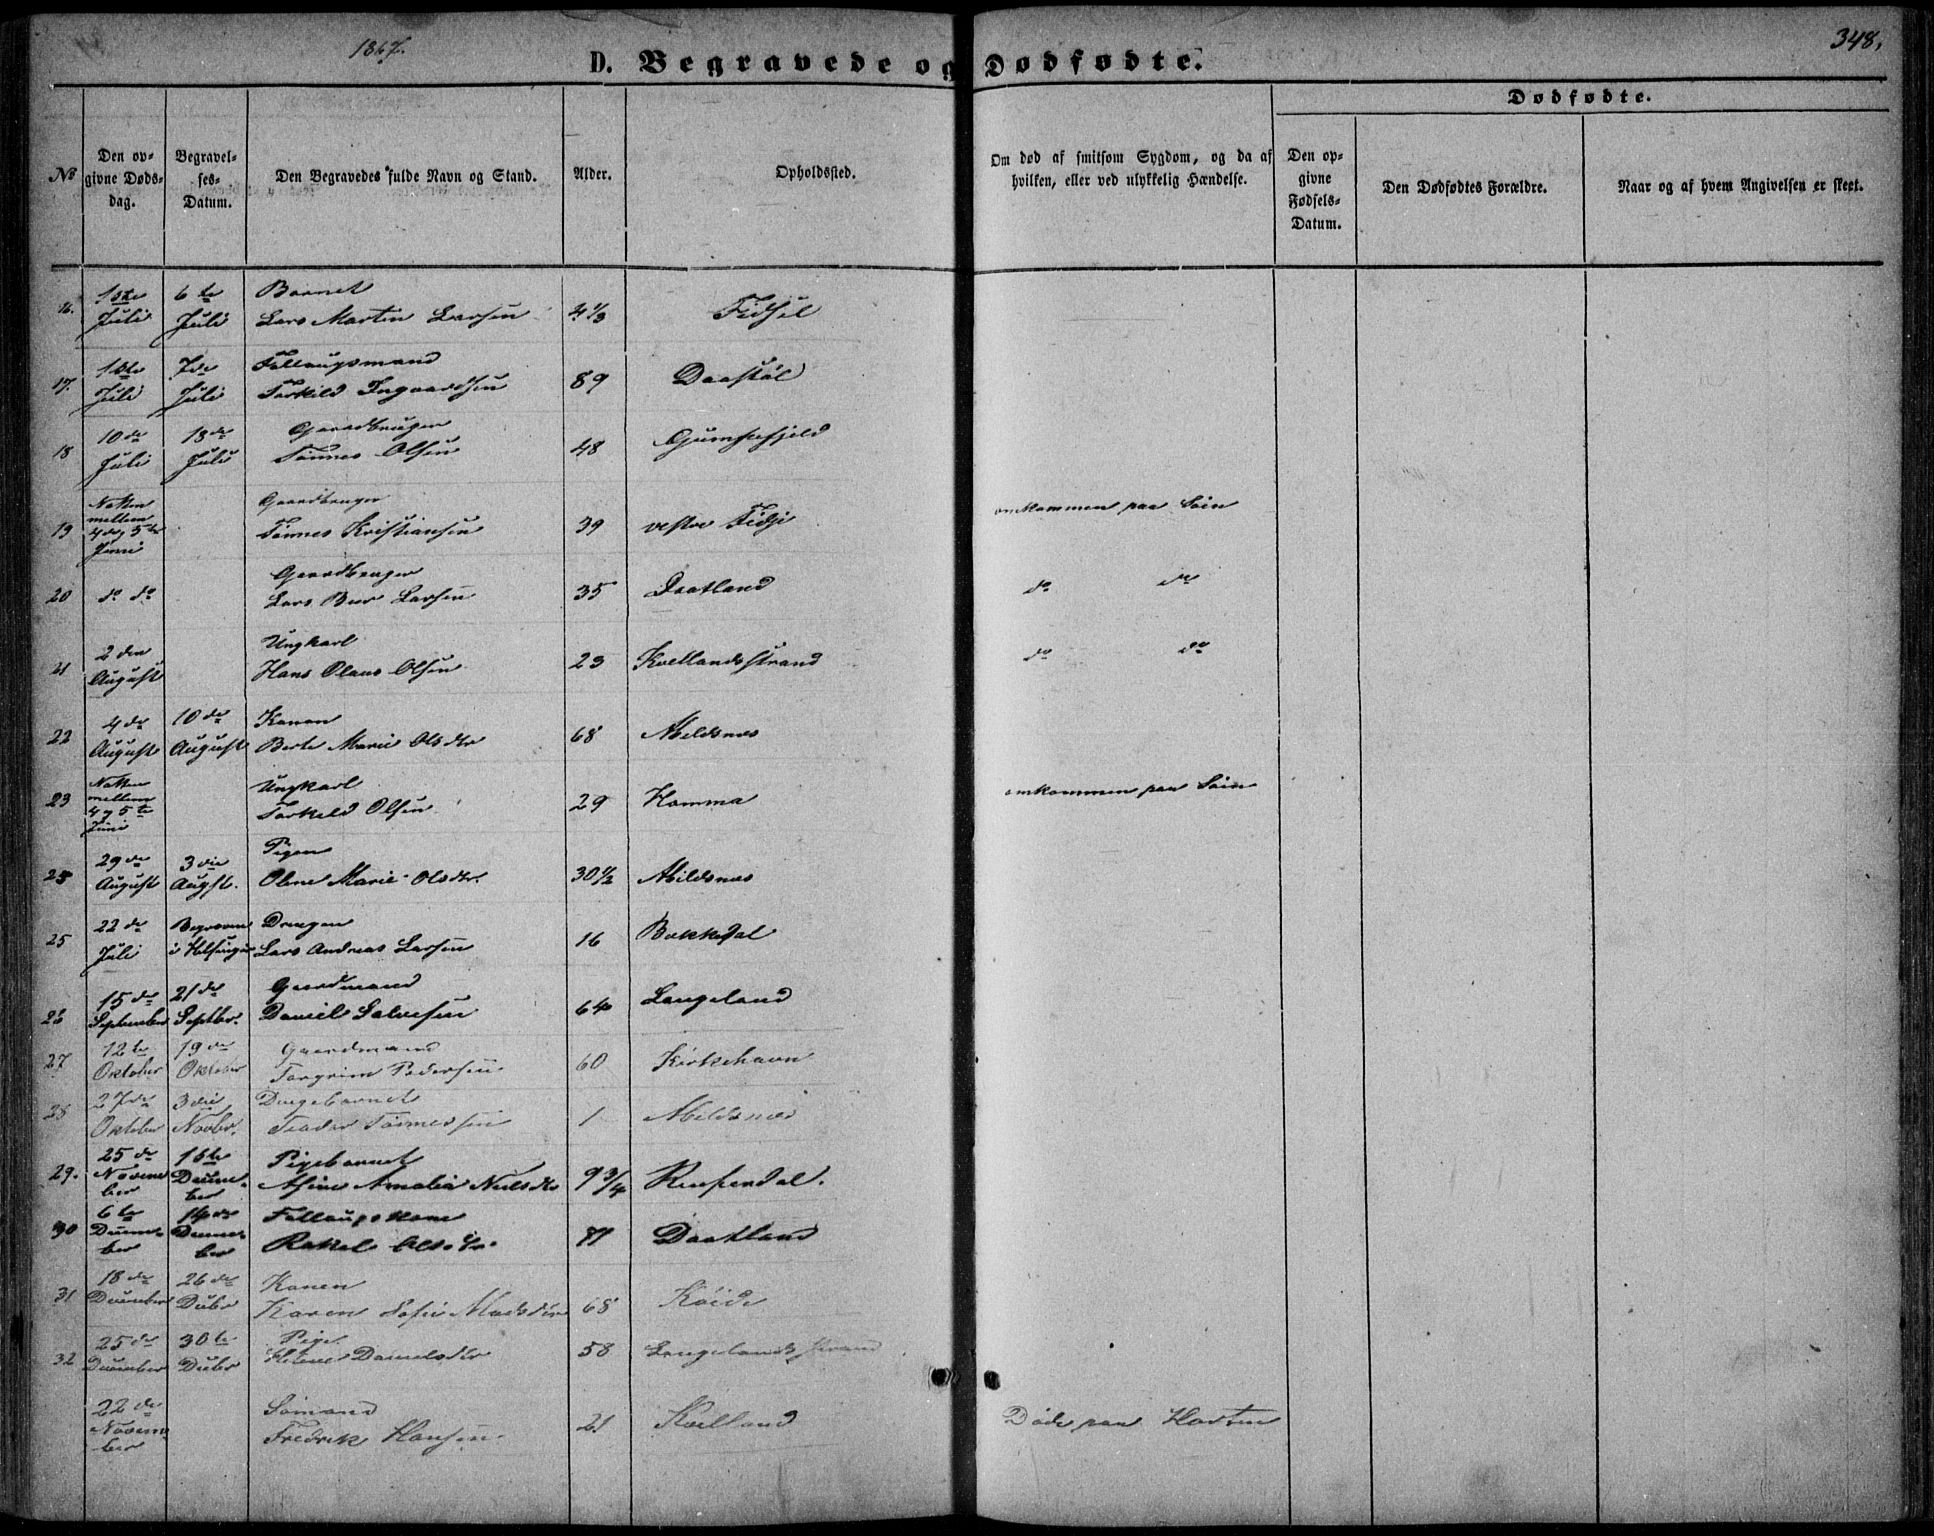 1867.
348,
D. Begravede og Dødfødte.
№
Den op-
givne Døds-
dag.
Begravel-
ses-
Datum.
Den Begravedes fulde Navn og Stand.
Alder.
Opholdssted.
Om død af smitsom Sygdom, og da af
hvilken, eller ved ulykkelig Hændelse.
Dødfødte.
Den op-
givne
Fødsels-
Datum.
Den Dødfødtes Forældre.
Naar og af hvem Angivelsen er skeet.
1ste 6te Barnet
16. Juli Juli Lars Martin Larsen 4 1/3 Fidsel
7de Follaugsmand
17. Juli Juli Torkild Ingvardsen 89 Daastøl
10de 18de Gaardbruger
18 Juli Juli Tønnes Olsen 48 Gumpefjeld
Natten Gaardbruger
mellem omkommen paa Søen
19 4 og 5te Tønnes Kristiansen 39 vestre Fidje
Juni
Gaardbruger
20 do do Lars Bur Larsen 35 Daatland do do
2den Ungkarl
21 August Hans Olaus Olsen 23 Kvellandsstrand do do
4de 10de Konen
22 August August Berte Marie Olsdtr 68 Abildsnæs
Natten Ungkarl
mellem omkommen paa Søen
23 4 og 5te Torkild Olsen 29 Homma
Juni
29de 3die Pigen
25 August Augst. Olene Marie Olsdtr. 30 1/2 Abildsnæs
22de Begraven Drengen
25 Juli i Helsingør Lars Andreas Larsen 16 Bakkedal
15de 21de Gaardmand
26 September Septbr. Daniel Salvesen 64 Langeland
12te 19de Gaardmand
27 Oktober Oktober Torgrim Pedersen 60 Kirkehavn
27de 3die Drengebarnet
28 Oktober Novbr. Teodor Tønnessen 1 Abildsnæs
25de 1ste Pigebarnet
29. Novem- Decem- Asine Amalia Nielsdtr 9 3/4 Rusendal.
ber ber
6te 14de Follaugskone
30 Decem- Decem- Rakel Olsdtr. 81 Daatland
ber ber
18de 26de Konen
31 December Decbr Karen Sofie Madsdtr 68 Røide
25de 30te Pige
32 December Decbr Helene Danielsdtr 58 Langelands strand
22de Sømand
Novem- Fredrik Hansen 21 Kvelland Døde paa Horten
ber